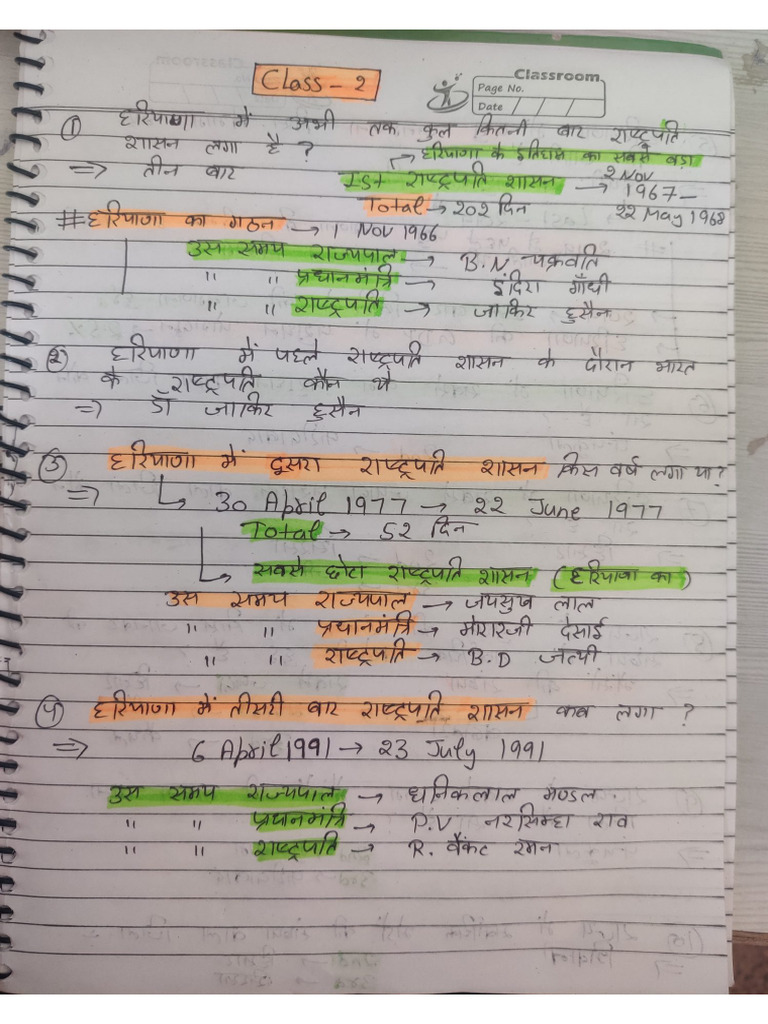 Class - 2
Classroom
Page No.
Date / /
① हरियाणा में अभी तक कुल कितनी बार राष्ट्रपति
शासन लगा है ?
→ हरियाणा के इतिहास का सबसे बड़ा
⇒ तीन बार
Ist राष्ट्रपति शासन → 2 Nov 1967 –
22 May 1968
Total → 202 दिन
# हरियाणा का गठन → 1 Nov 1966
उस समय राज्यपाल → B.N - चक्रवति
" " प्रधानमंत्रि → इंदिरा गाँधी
" " राष्ट्रपति → जाकिर हुसैन
② हरियाणा में पहले राष्ट्रपति शासन के दौरान भारत
के राष्ट्रपति कौन थे
⇒ डॉ जाकिर हुसैन
③ हरियाणा में दूसरा राष्ट्रपति शासन किस वर्ष लगा था ?
⇒ ↳ 30 April 1977 → 22 June 1977
Total → 52 दिन
↳ सबसे छोटा राष्ट्रपति शासन (हरियाणा का)
उस समय राज्यपाल → जयसुख लाल
" " प्रधानमंत्रि → मोरारजी देसाई
" " राष्ट्रपति → B.D जत्यी
④ हरियाणा में तीसरी बार राष्ट्रपति शासन कब लगा ?
⇒ 6 April 1991 → 23 July 1991
उस समय राज्यपाल → धनिकलाल मण्डल
" " प्रधानमंत्रि → P.V नरसिम्हा राव
" " राष्ट्रपति → R. वैंकट रमन